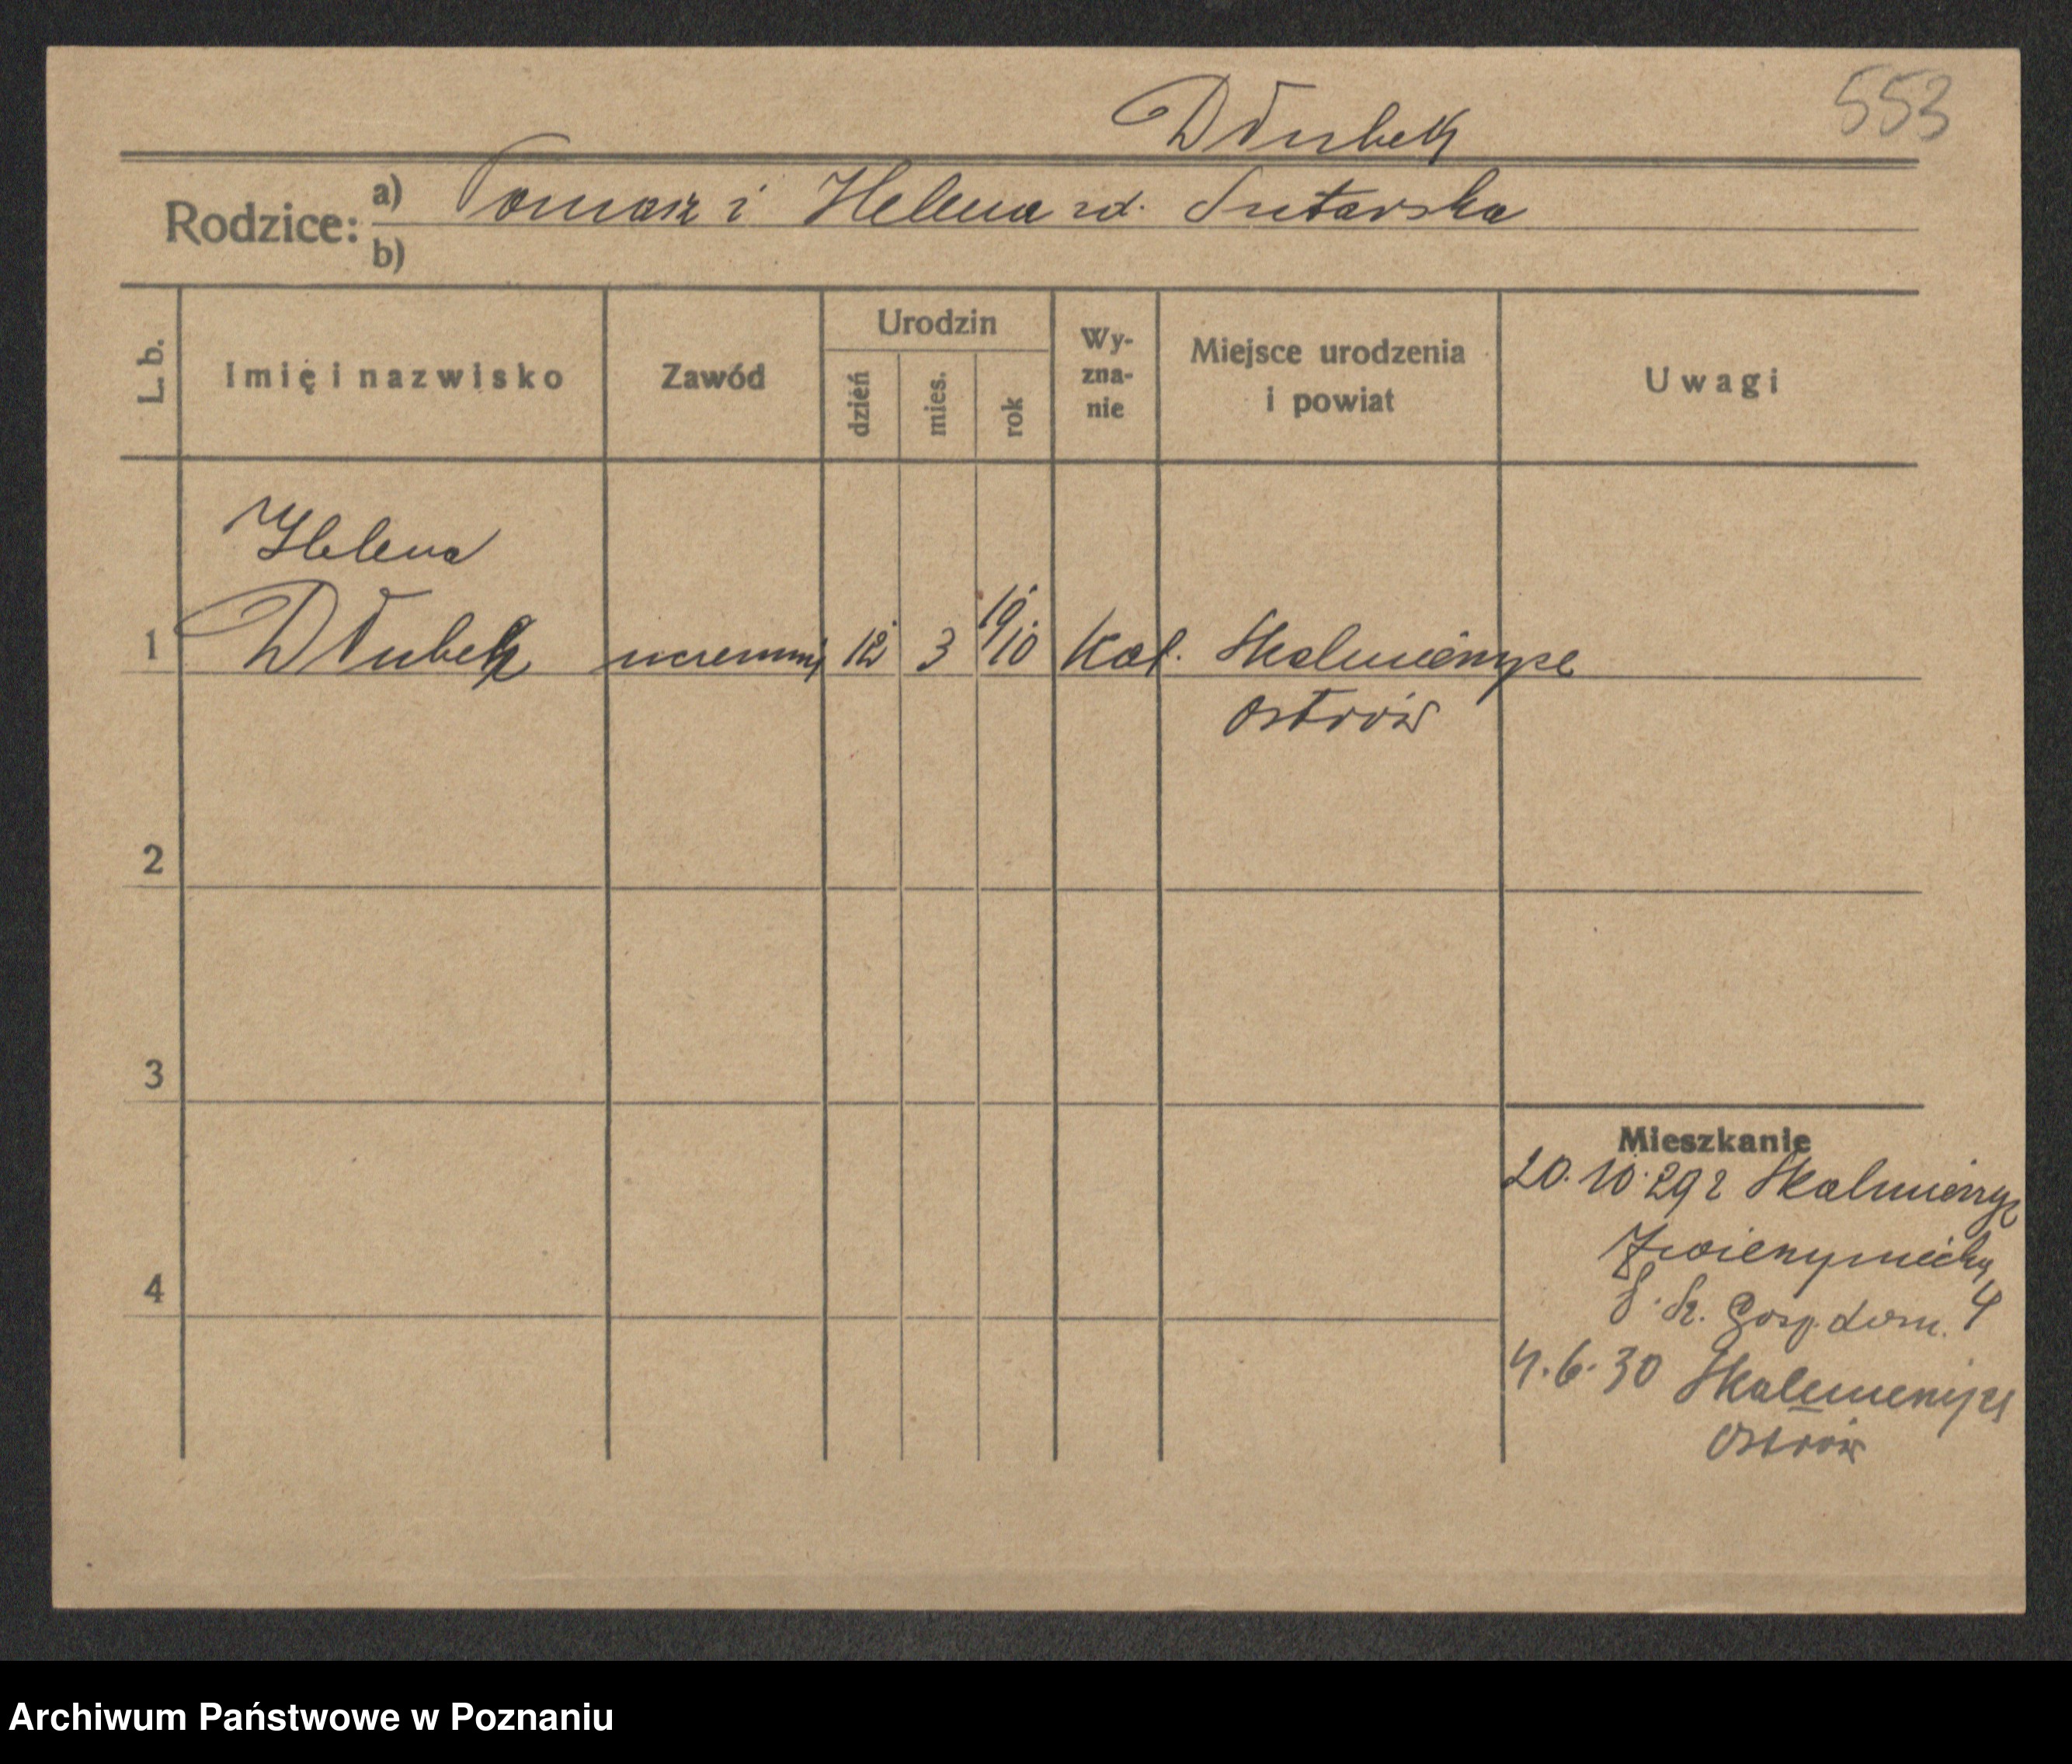 Dłubek
553
Rodzice: a) Tomasz i Helena zd. Sutarska
b)
L. b.
Imię i nazwisko
Zawód
Urodzin
dzień
mies.
rok
Wy-
zna-
nie
Miejsce urodzenia
i powiat
Uwagi
Helena
1 Dłubek uczenni 12 3 19/10 Kat. Skalmierzyce
Ostrów
2
3
Mieszkanie
20.10.29 z Skalmierzyc
Zwierzyniecka
4
S. Sz. Gosp. dom. 4
4.6.30 Skalmierzyce
Ostrów
Archiwum Państwowe w Poznaniu